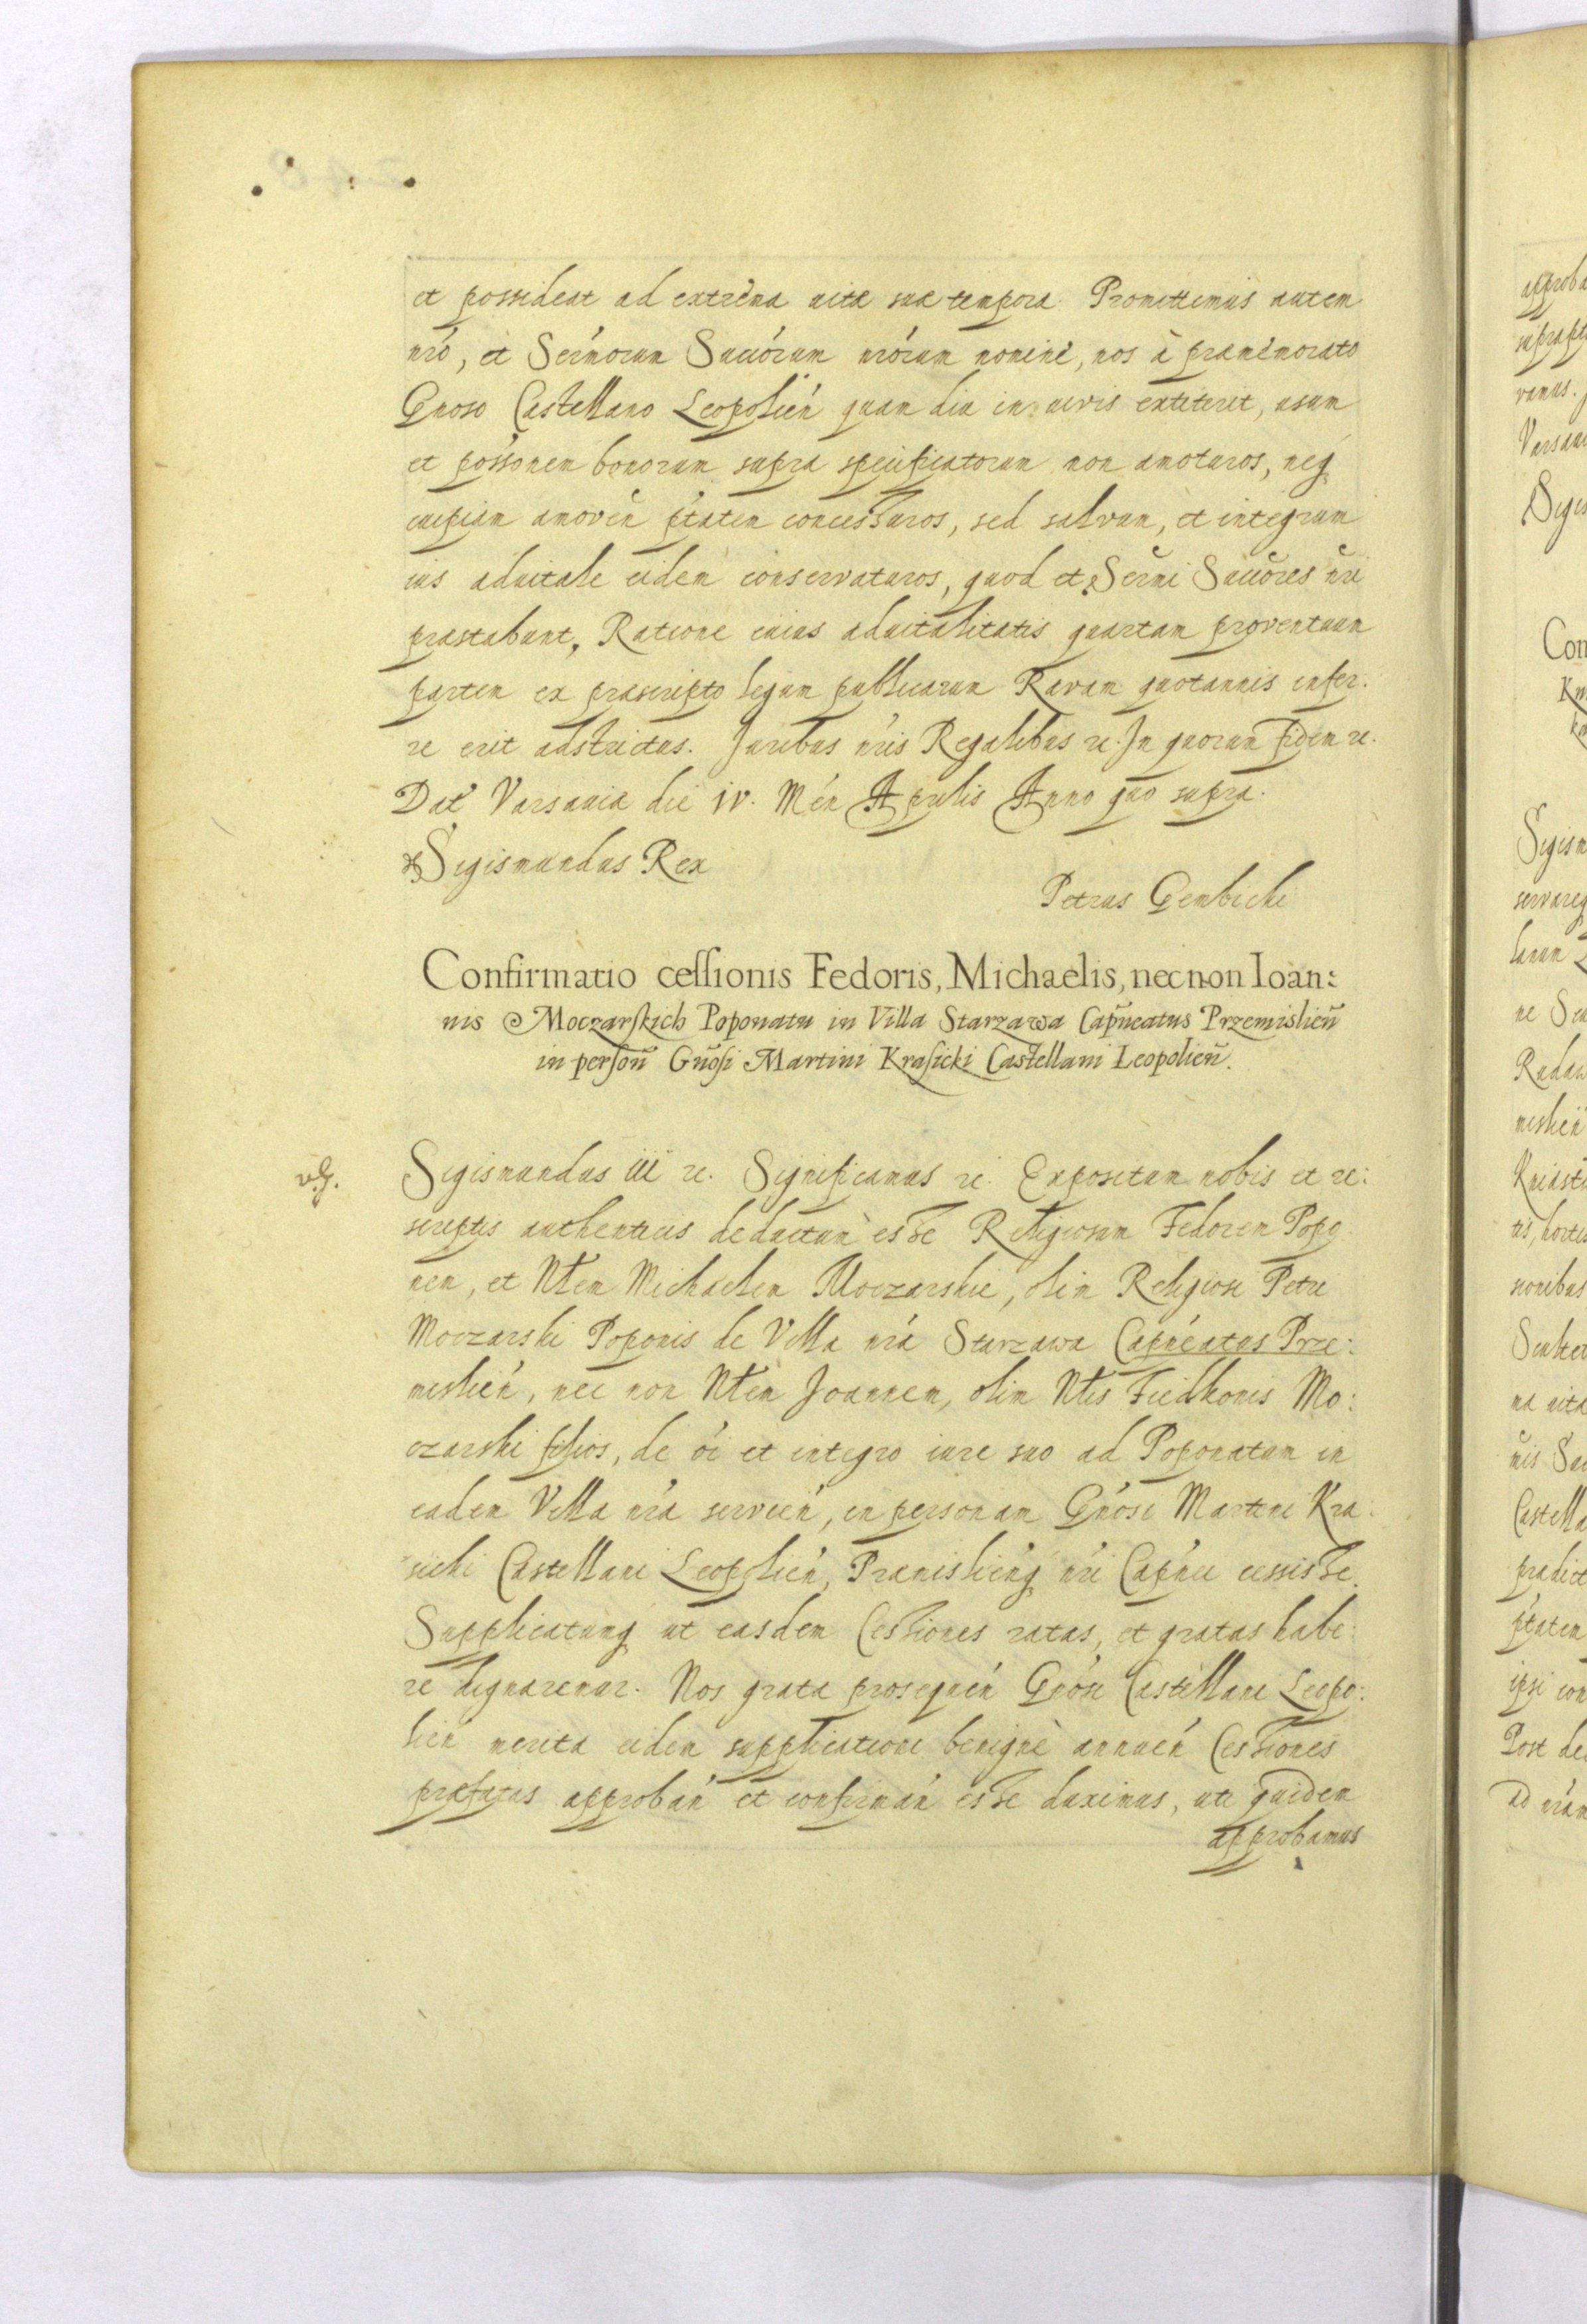 et possideat ad extrema uitæ suæ tempora. Promittimus autem
nró, et Sermórum Succórum nrórum nomine, nos à præmemorato
Gnoso Castellano Leopolień quam diu in uiuis extiterit, usum
et possónem bonorum supra specificatorum non amoturos, neq
cuipiam amoueń ptátem concessuros, sed saluum, et integrum
ius aduitale eidem conseruaturos, quod et Sermi Succóres nri
præstabunt, Ratione cuius aduitalitatis quartam prouentuum
partem ex præscripto legum publicarum Rauam quotannis infer:
re erit adstrictus. Juribus nris Regalibus rc. In quorum fidem rc.
Dat Varsauiæ die IV. Meń Aprilis Anno quo supra.
Sigismundus Rex
Petrus Gembicki
Confirmatio cessionis Fedoris, Michaelis, necnon Ioan:
nis Moczarskich Poponatu in Villa Starzawa Capneatus Przemislień
in personͫ Gnosi Martini Krasicki Castellani Leopolień.
Sigismundus III rc. Significamus rc. Expositum nobis et re:
scriptis authenticis deductum esse Religiosum Fedorem Popo
nem, et Nlem Michaelem Moczarskie, olim Religiosi Petri
Moczarski Poponis de Villa nrá Starzawa Capneatus Prze:
mislień, nec non Nlem Joannem, olim Nlis Fiedkonis Mo:
czarski filios, de oí et integro iure suo ad Poponatum in
eadem Villa nrá seruień, in personam Gnósi Martini Kra:
sicki Castellani Leopolień, Præmislieńq nri Capnei cessisse.
Supplicatumq ut easdem Cessiones ratas, et gratas habe:
re dignaremur. Nos grata prosequeń Gnósi Castellani Leopo:
lień merita eidem supplicationi benignè annueń Cessiones
præfatas approbań et confirmań esse duximus, uti quidem
approbamus